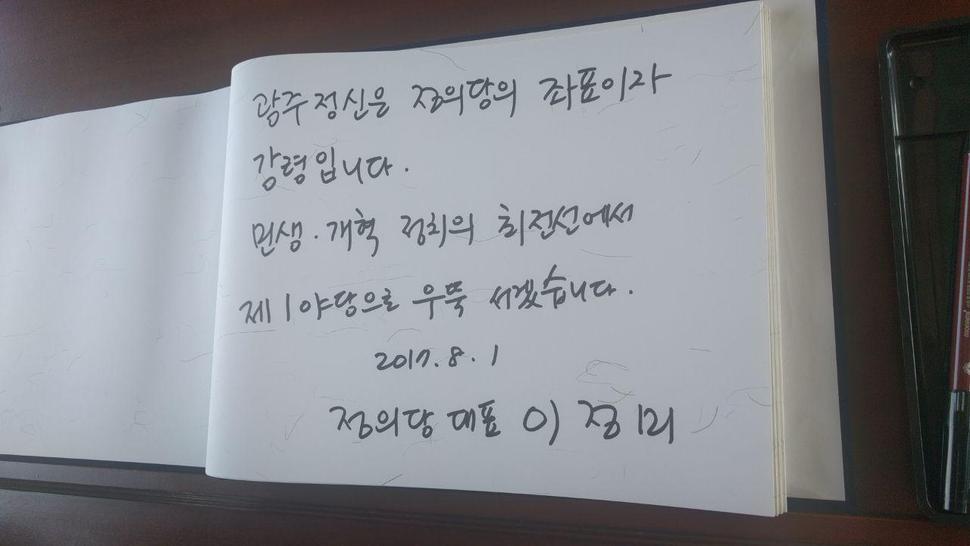 광주정신은 정의당의 좌표이자
강령입니다.
민생·개혁 정치의 최전선에서
제1야당으로 우뚝 서겠습니다.
2017. 8. 1
정의당 대표 이정미